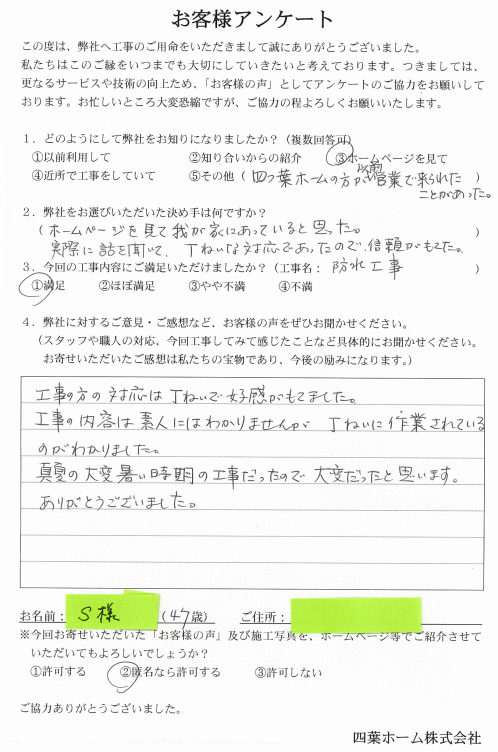 お客様アンケート
この度は、弊社へ工事のご用命をいただきまして誠にありがとうございました。
私たちはこのご縁をいつまでも大切にしていきたいと考えております。つきましては、
更なるサービスや技術の向上ため、「お客様の声」としてアンケートのご協力をお願いして
おります。お忙しいところ大変恐縮ですが、ご協力の程よろしくお願いいたします。
1．どのようにして弊社をお知りになりましたか？（複数回答可）
①以前利用して ②知り合いからの紹介 ③ホームページを見て
④近所で工事をしていて ⑤その他（ 四っ葉ホームの方が以前営業で来られた ）
ことがあった。
2．弊社をお選びいただいた決め手は何ですか？
（ホームページを見て我が家にあっていると思った。 ）
実際に話を聞いて、丁ねいな対応であったので信頼がもてた。
3．今回の工事内容にご満足いただけましたか？（工事名： 防水工事 ）
①満足 ②ほぼ満足 ③やや不満 ④不満
4．弊社に対するご意見・ご感想など、お客様の声をぜひお聞かせください。
（スタッフや職人の対応、今回工事してみて感じたことなど具体的にお聞かせください。
お寄せいただいたご感想は私たちの宝物であり、今後の励みになります。）
工事の方の対応は丁ねいで好感がもてました。
工事の内容は素人にはわかりませんが 丁ねいに作業されている
のがわかりました。
真夏の大変暑い時期の工事だったので大変だったと思います。
ありがとうございました。
お名前： S様 （47歳） ご住所：
※今回お寄せいただいた「お客様の声」及び施工写真を、ホームページ等でご紹介させて
いただいてもよろしいでしょうか？
①許可する ②匿名なら許可する ③許可しない
ご協力ありがとうございました。
四葉ホーム株式会社